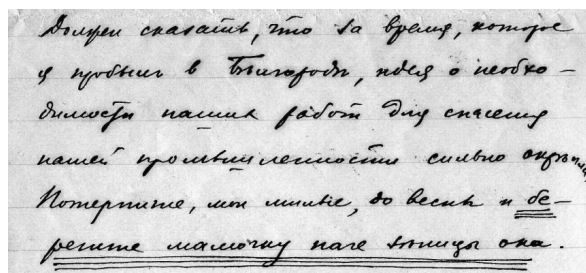 Должен сказать, что за время, которое
я пробыл в Бѣлгородѣ, идея о необхо-
димости наших работ для спасения
нашей промышленности сильно окрѣпла.
Потерпите, мои милые, до весны и бе-
регите мамочку паче зѣницы ока.